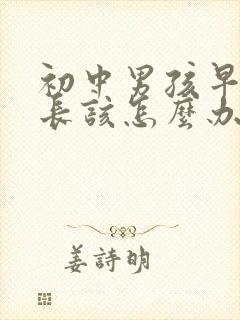 初中男孩早
长該怎麽办
姜詩明